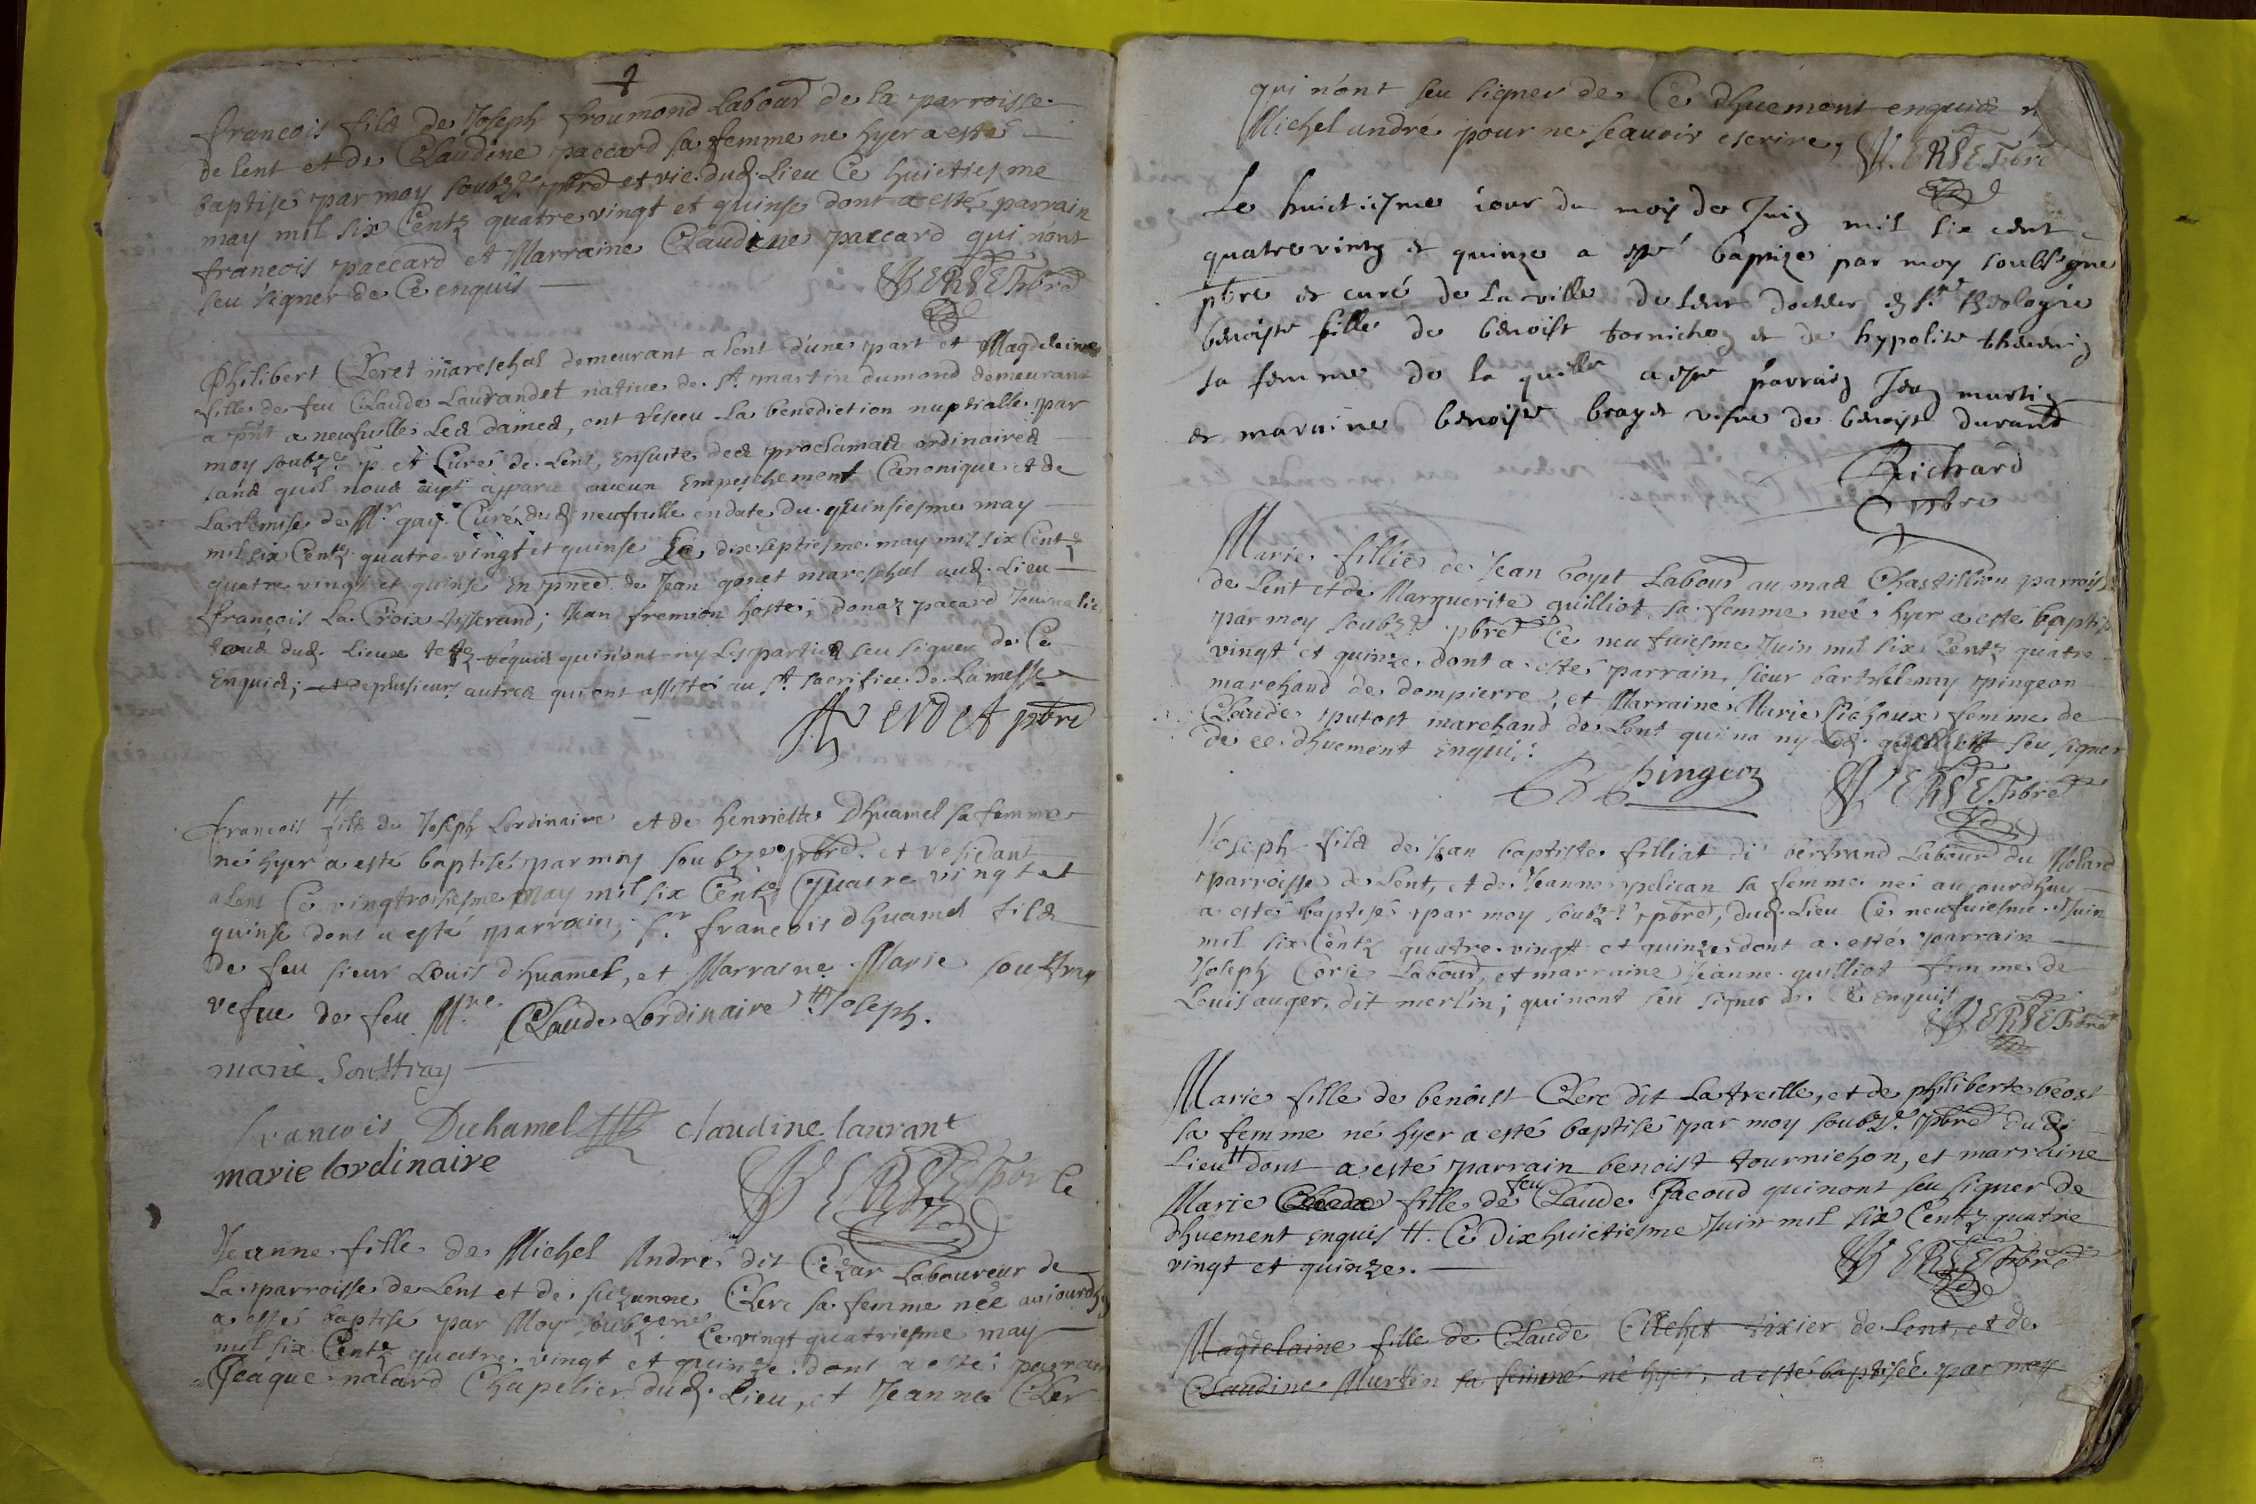 francois fils de Joseph froumond Labour de la parroisse
de lent et de Claudine paccard sa femme ne hyer a esté
baptisé par moy soubz.é pbre et vic. dud. Lieu Ce huictiesme
may mil six Centz quatre vingt et quinse dont a esté parrain
francois paccard et Marraine Claudine paccard qui nont
seu signer de Ce enquis
VERSET pbre
Philibert Cleret mareschal demeurant a lent d'une part et Magdeleine
fille de feu Claude Laurandet natiue de st. martin dumond demeurant
a pnt a neufuille Led dames, ont reseu la benediction nuptialle par
moy soubz.é p. et Curé de Lent, ensuite des proclamaōs ordinaires
sans quil nous ayt apparu aucun Empeschement Canonique et de
La remise de Mr. gay Curé dud neufuille en date du quinsiesme may
mil six Centz quatre vingt et quinse Le dixseptiesme may mil six Centz
quatre vingt et quinse En pnce de Jean gonet mareschal aud. Lieu
francois La Croix tysserand; Jean fremion hoste; donaz pacard Journalie
tous dud. Lieux requis qui nont ny les parties seu signer de Ce
Enquis; et de plusieurs autres qui ont assisté au st. sacrifice De La messe
VERSET pbre
francois fils de Joseph Lordinaire et de henriette Dhuamel sa femme
né hyer a esté baptisé par moy soubz.é pbre. et residant
a Lent Ce vingtroisiesme may mil six Centz Quatre vingt et
quinse dont a esté parrain; sr. francois dhuamel fils
de feu sieur Louis dhuamel, et Marrasne Marie souttray
vefue de feu Mre. Claude Lordinaire # Joseph.
marie Souttray
francois Duhamel claudine laurant
marie lordinaire
VERSET pbre
Jeanne fille de Michel André dit Cezar Laboureur de
La parroisse de Lent et de suzanne Clerc sa femme née aujourdhuy
a esté baptisé par Moy soubz.né Ce vingt quatriesme may
mil six Centz quatre vingt et quinze dont a esté parrain
Jeaque nalard Chapelier dud. Lieu, et Jeanne Cler
qui n'ont seu signer de Ce dhuement enquis
Michel andré pour ne scauoir escrire, VERSET pbre
Le huictiesme iour du mois de Juin mil six cent
quatre vingt et quinze a esté baptize par moy soubsigne
pbre et curé de la ville de lent docteur en ste theologie
benoiste fille de benoist tornichon et de hypolite theuenin
sa femme de la quelle a este parrain Jean martin
et maraine benoiste braye vefue de benoist durand
Richard
pbre
Marie fillie de Jean boyet Labour au mas Chastillion parroisse
de Lent et de Marguerite guilliot sa femme neé hyer a esté baptisé
par moy soubz.é pbre Ce neufuiesme Juin mil six Centz quatre
vingt et quinze dont a esté parrain sieur barthelemy pingeon
marchand de dompierre, et Marraine Marie Sichoux femme de
Claude putost marchand de Lent qui na ny Led. guilliot seu signer
de ce dhuement enquis.
B pingeon VERSET pbre
Joseph fils de Jean baptiste filliat di bertrand Labour du Molard
parroisse de Lent, et de Jeanne pelican sa femme né aujourdhuy
a esté baptisé par moy soubz.é pbre, dud. Lieu Ce neufuiesme Juin
mil six Centz quatre vingt et quinze dont a esté parrain
Joseph Corie Labour, et marraine Jeanne guilliot femme de
Louis auger, dit merlin; qui nont seu signer de Ce enquis
VERSET pbre
Marie fille de benoist Clerc dit Latreille, et de philiberte beost
sa femme né hyer a esté baptisé par moy soubz.é pbre dud
Lieu # dont a esté parrain benoist tournichon, et marraine
Marie fille de feu Claude Jacoud qui nont seu signer de
dhuement enquis #. Ce Dixhuictiesme Juin mil six Centz quatre
vingt et quinze.
VERSET pbre
Magdelaine fille de Claude tixier de Lent, et de
Claudine Martin sa femme né hyer, a esté baptisée par moy